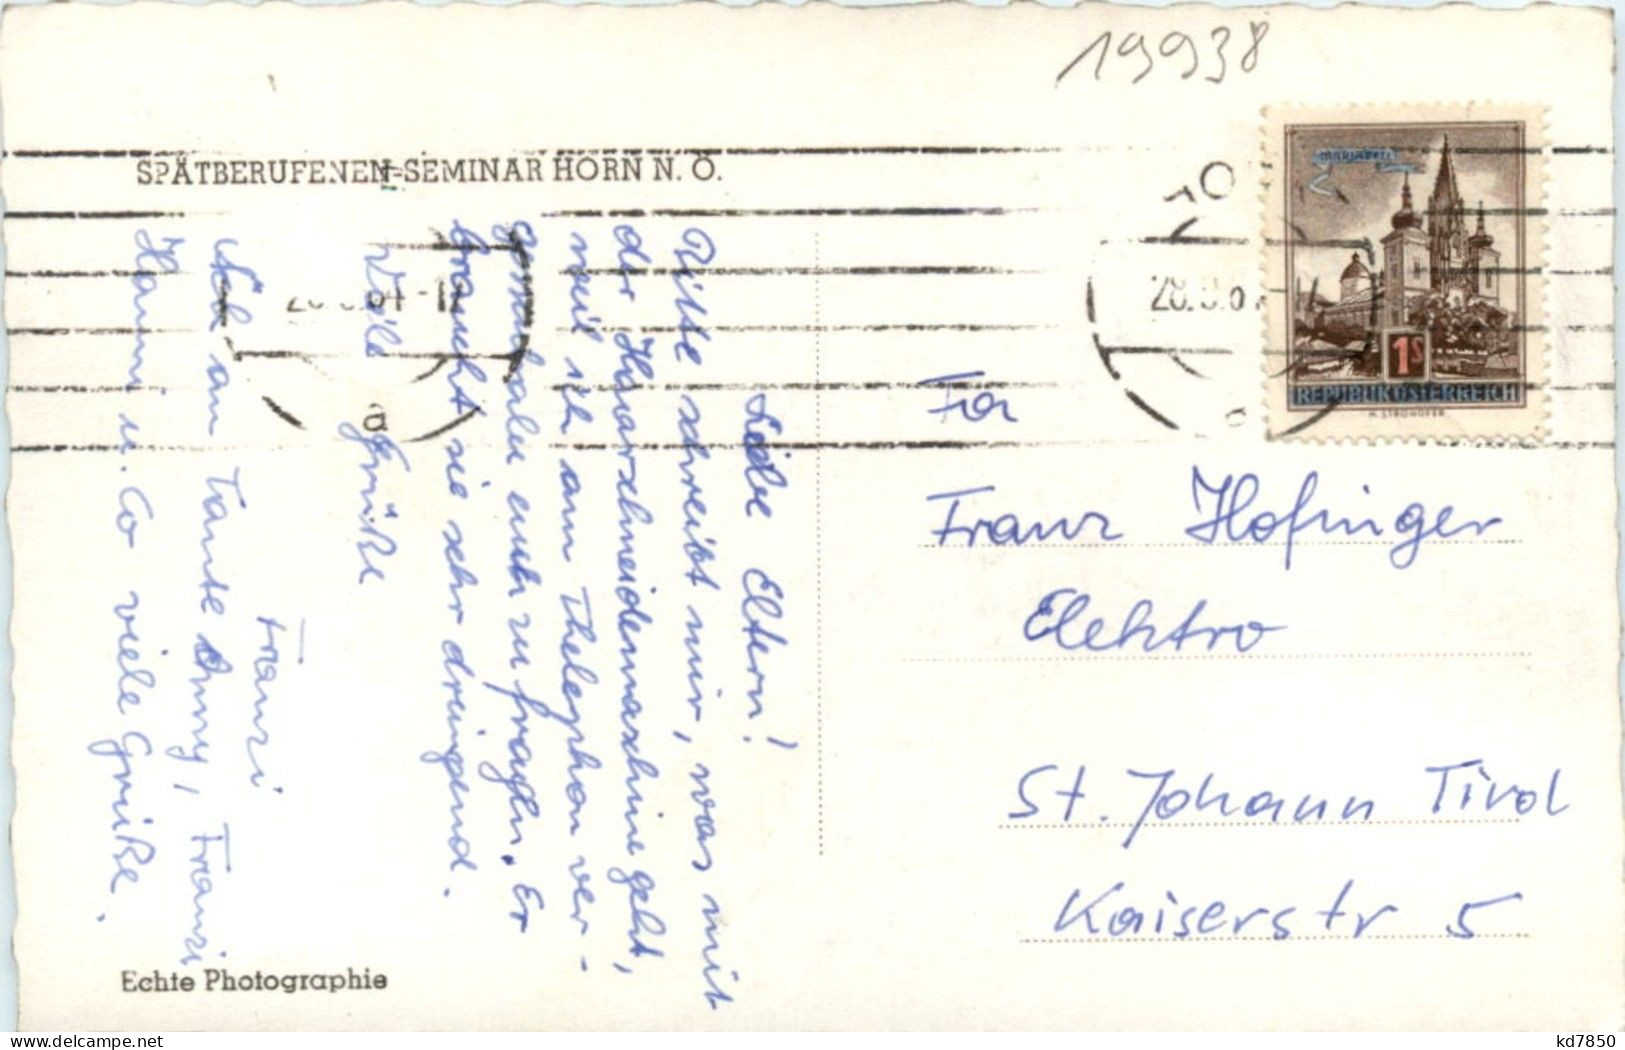 19938
SPÄTBERUFENEN-SEMINAR HORN N. Ö.
MARIAZELL
1S
REPUBLIK ÖSTERREICH
H. STROHOFER
28.9.61-12
a
28.9.61
Liebe Eltern!
Bitte schreibt mir, was mit
der Haarschneidemaschine geht,
weil ich am Thelephon ver-
gessen habe euch zu fragen. Er
braucht sie sehr dringend.
Viele Grüße
Franzi
Tante Anny, Franzi
Hanni u. Co viele Grüße.
Für
Franz Hofinger
Elektro
St. Johann Tirol
Kaiserstr 5
Echte Photographie
kd7850